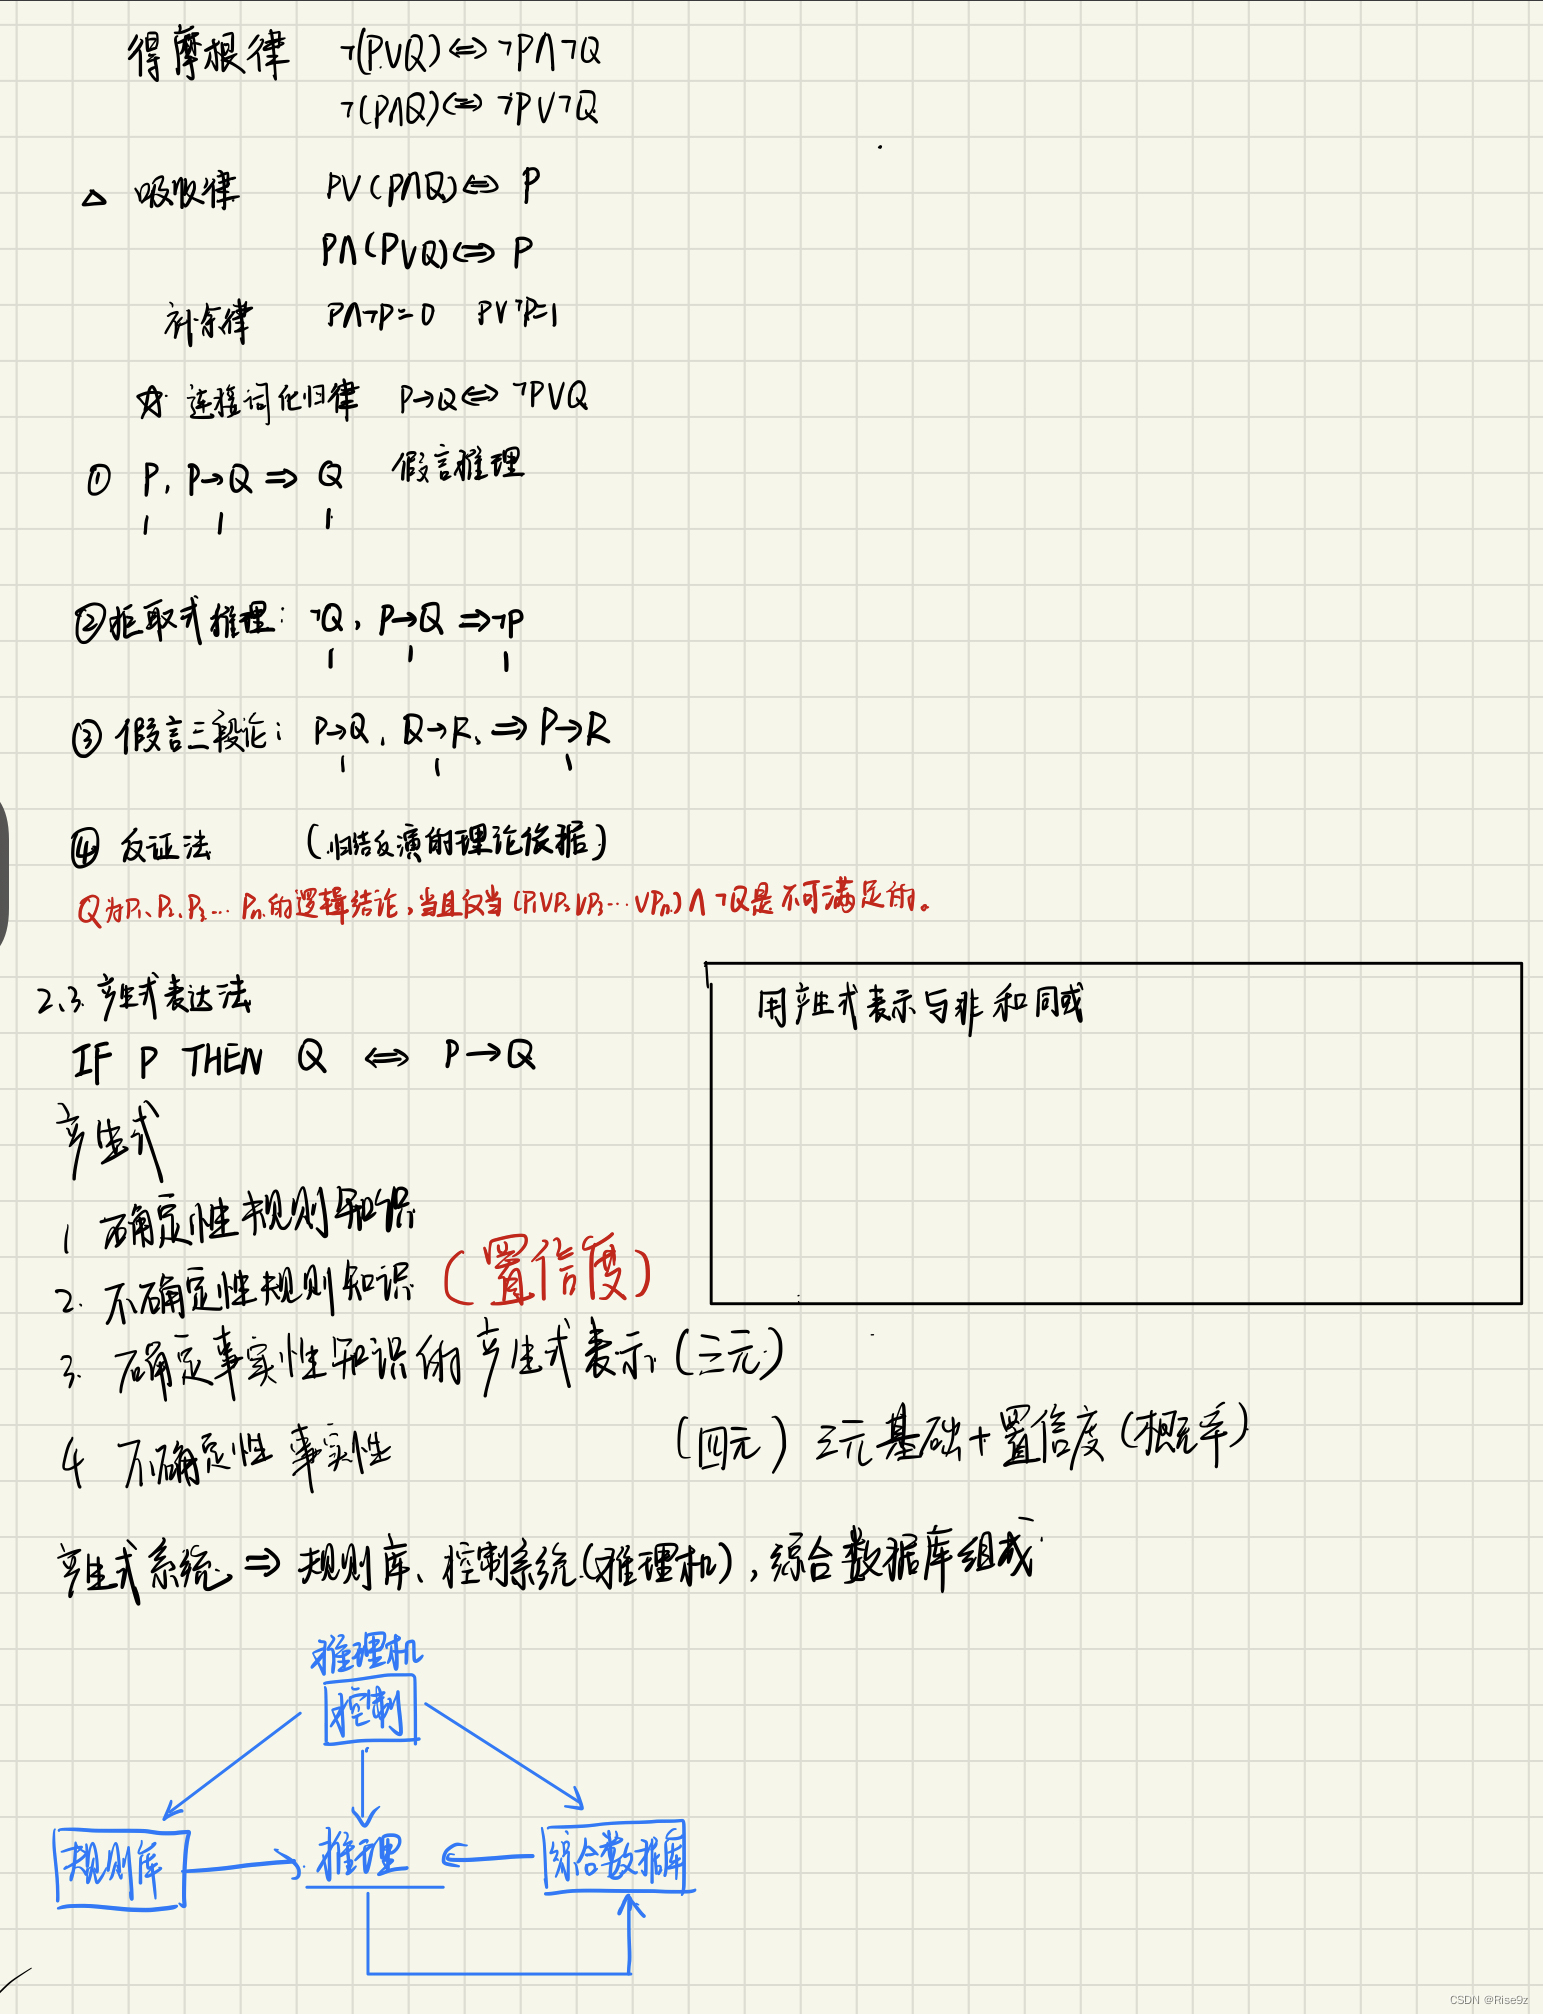 得摩根律 ¬(P∨Q)⇔¬P∧¬Q
¬(P∧Q)⇔¬P∨¬Q
△ 吸收律 P∨(P∧Q)⇔P
P∧(P∨Q)⇔P
补余律 P∧¬P=0 P∨¬P=1
☆ 连接词化归律 P→Q⇔¬P∨Q
① P, P→Q⇒Q 假言推理
1 1 1
②拒取式推理: ¬Q, P→Q⇒¬P
1 1 1
③ 假言三段论: P→Q, Q→R, ⇒P→R
1 1 1
④ 反证法 (归结反演的理论依据)
Q为P₁、P₂、P₃…Pn的逻辑结论,当且仅当(P₁∨P₂∨P₃…∨Pn)∧¬Q是不可满足的。
2.3. 产生式表达法
IF P THEN Q ⇔ P→Q
用产生式表示与非和同或
产生式
1 确定性规则知识
2. 不确定性规则知识 (置信度)
3. 确定事实性知识的产生式表示 (三元)
4 不确定性事实性 (四元) 三元基础+置信度(概率)
产生式系统⇒规则库、控制系统(推理机),综合数据库组成
推理机
控制
规则库 推理 综合数据库
CSDN @Rise9z